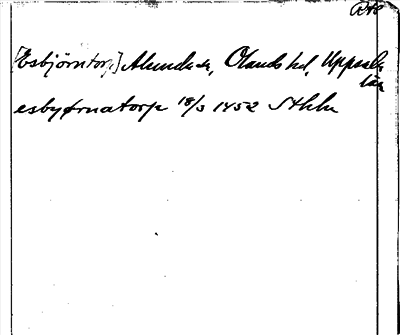 [Esbjörntorp] Alunda sn, Olands hd, Uppsala
län
esbyørnatorp 18/3 1452 Sthlm